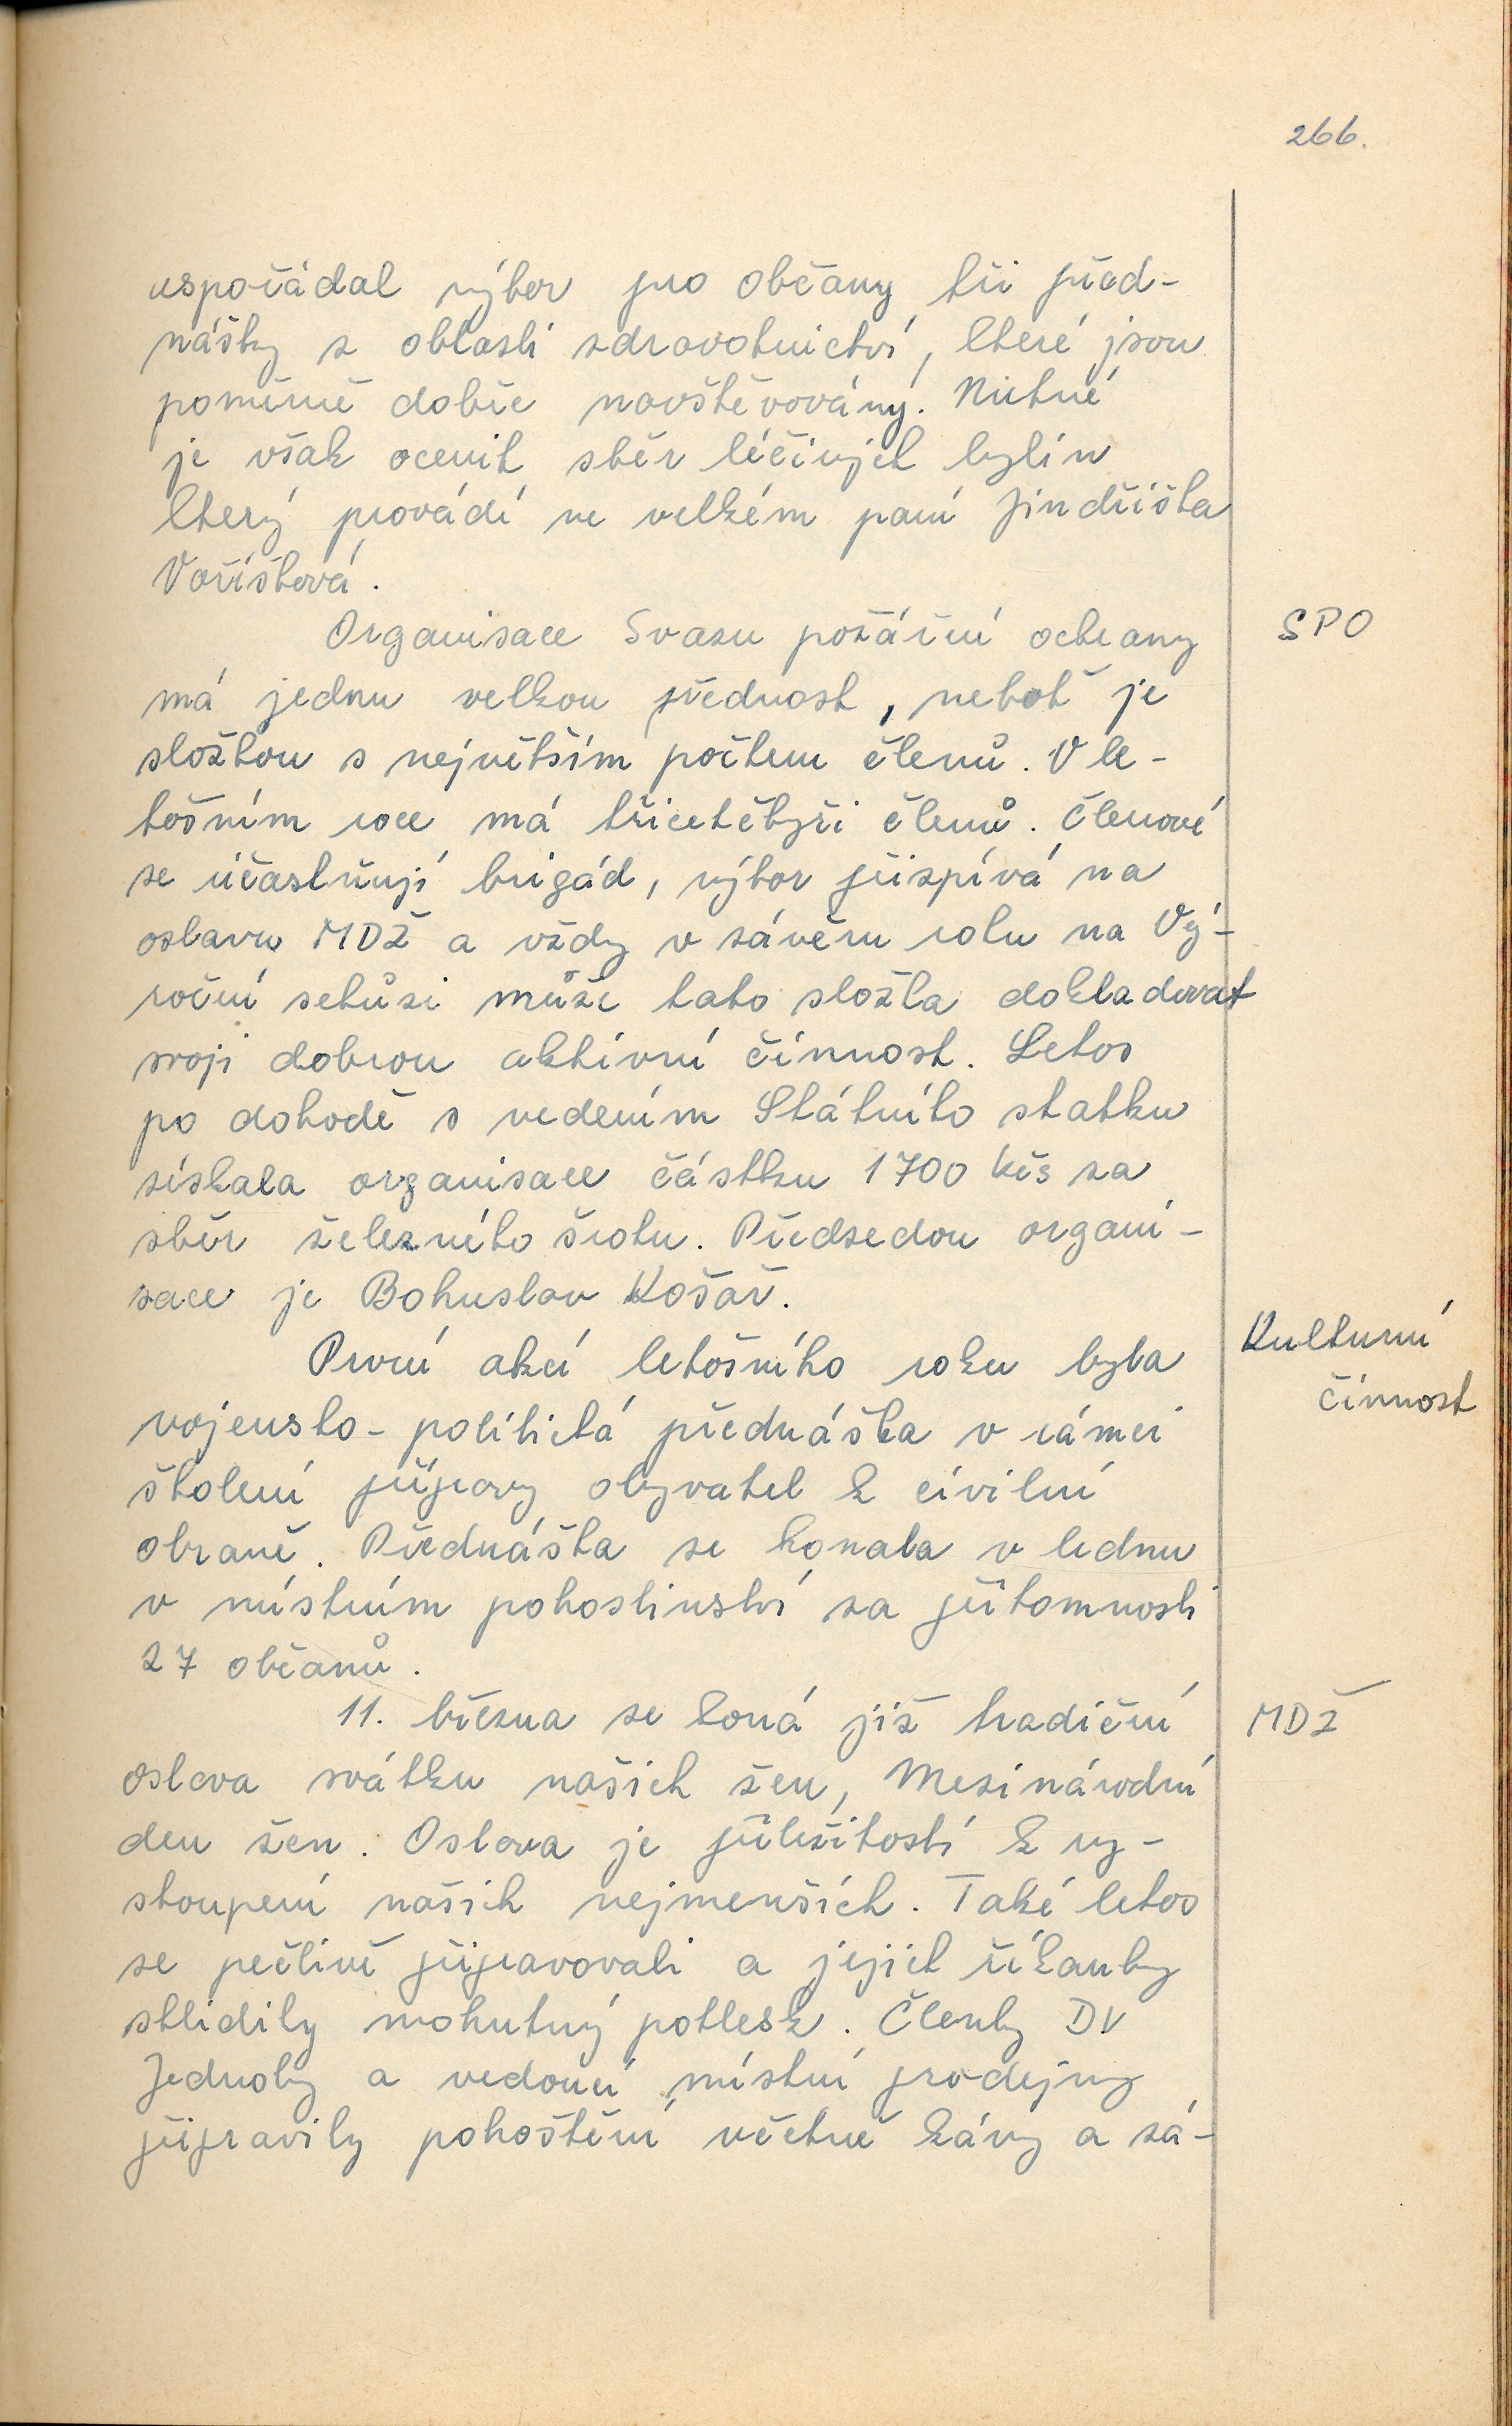 266.
uspořádal výbor pro občany tři před-
nášky z oblasti zdravotnictví, které jsou
poměrně dobře navštěvovány. Nutné
je však ocenit sběr léčivých bylin
který provádí ve velkém paní Jindřiška
Voříšková.
Organisace Svazu požární ochrany
SPO
má jednu velkou přednost, neboť je
složkou s největším počtem členů. V le-
tošním roce má třicetčtyři členů. Členové
se účastňují brigád, výbor přispívá na
oslavu MDŽ a vždy v závěru roku na Vý-
roční schůzi může tato složka dokladovat
svoji dobrou aktivní činnost. Letos
po dohodě s vedením Státního statku
získala organisace částku 1700 Kčs za
sběr železného šrotu. Předsedou organi-
sace je Bohuslav Košař.
První akcí letošního roku byla
Kulturní
činnost
vojensko-politická přednáška v rámci
školení přípravy obyvatel k civilní
obraně. Přednáška se konala v lednu
v místním pohostinství za přítomnosti
27 občanů.
11. března se koná již tradiční
MDŽ
oslava svátku našich žen, Mezinárodní
den žen. Oslava je příležitostí k vy-
stoupení našich nejmenších. Také letos
se pečlivě připravovali a jejich říkanky
sklidily mohutný potlesk. Členky DV
Jednoty a vedoucí místní prodejny
připravily pohoštění včetně kávy a zá-